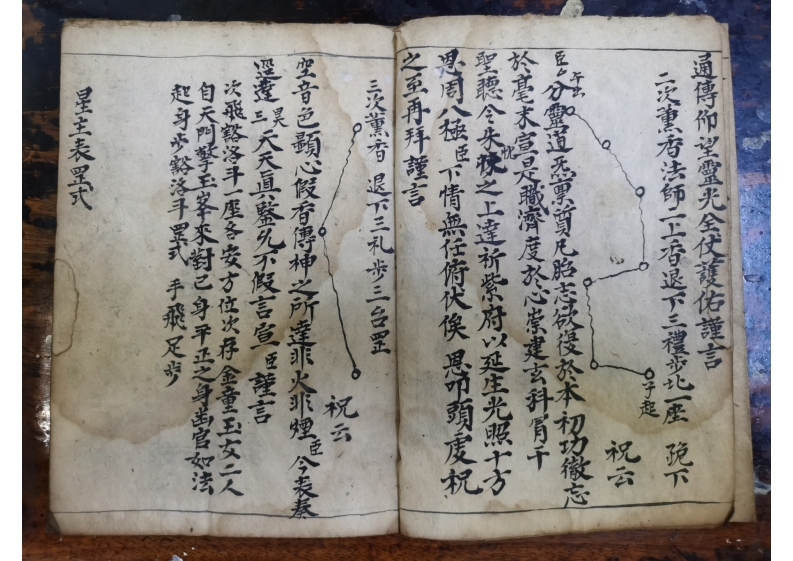 通傳仰望靈光全仗護佑謹言
二次薰香法師一上香退下三禮步北一座 跪下
子起
祝云
午出
臣分靈道炁禀質凡胎志欲復於本初功徹忘
於毫末宣是職濟度於心崇建玄科冐干
聖聽令朱忱之上達祈紫府以延生光照十方
恩周八極臣下情無任俯伏俟恩叩頭虔祝
之至再拜謹言
三次薰香 退下三礼步三台罡
祝云
空音色顯心假香傳神之所達非火非煙臣今表奏
遥達三天天真鑒允不假言宣臣謹言
次飛豁落斗一座各安方位次存金童玉女二人
自天門擎玉峯來對己身平正之身出官如法
起身步豁落斗罡式 手飛足步
星主表罡式